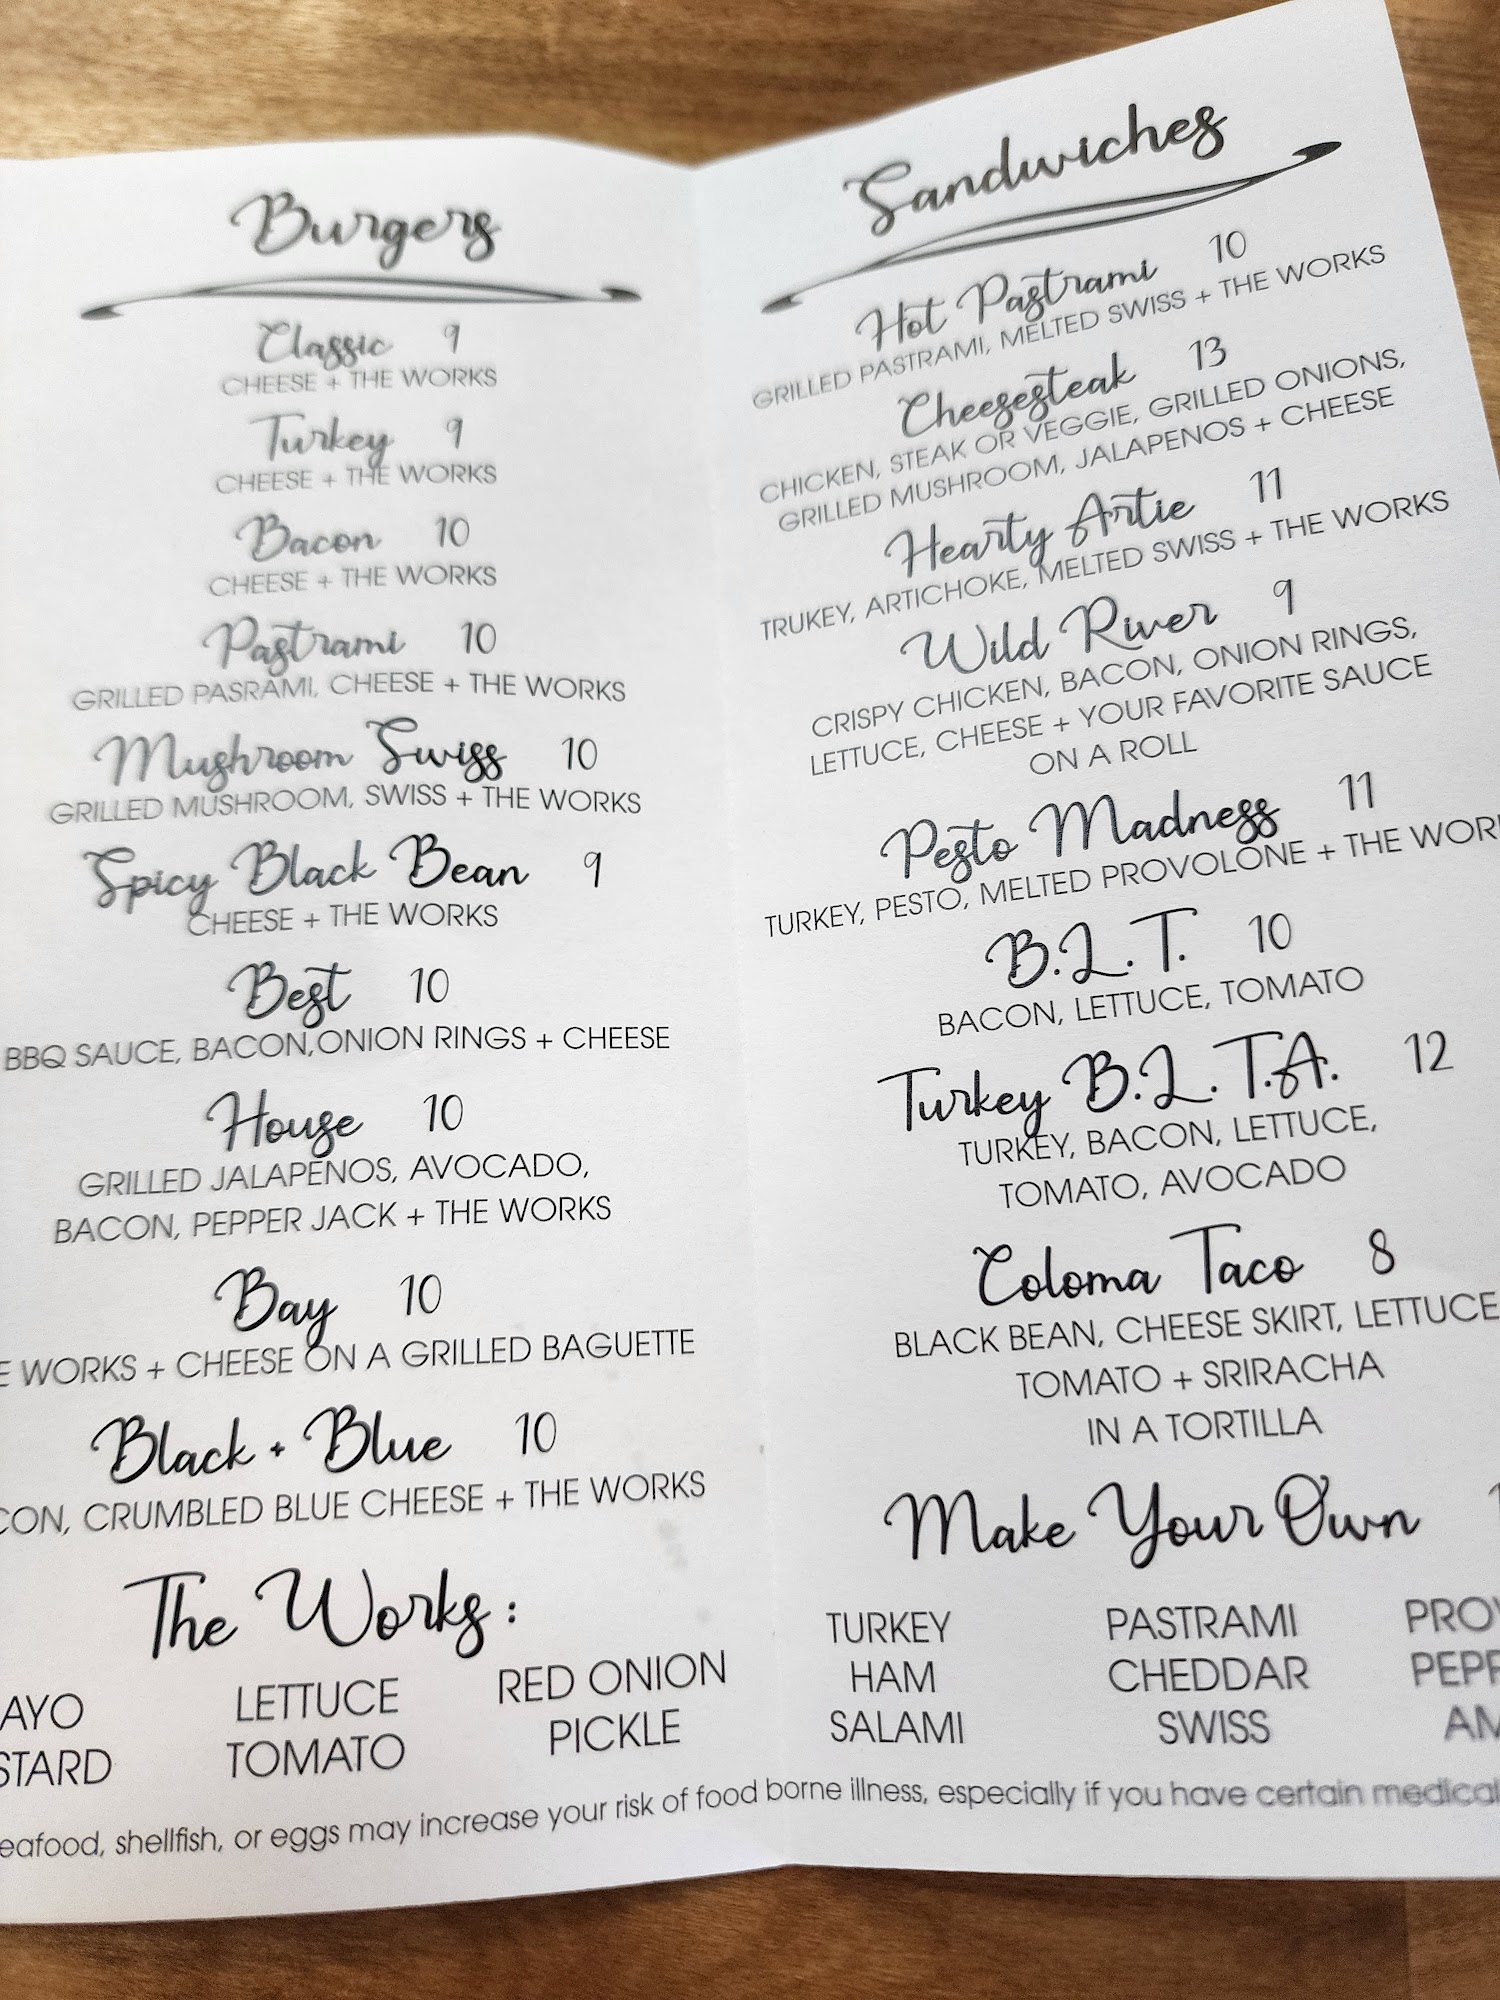 Burgers
Classic 9
CHEESE + THE WORKS
Turkey 9
CHEESE + THE WORKS
Bacon 10
CHEESE + THE WORKS
Pastrami 10
GRILLED PASRAMI, CHEESE + THE WORKS
Mushroom Swiss 10
GRILLED MUSHROOM, SWISS + THE WORKS
Spicy Black Bean 9
CHEESE + THE WORKS
Best 10
BBQ SAUCE, BACON,ONION RINGS + CHEESE
House 10
GRILLED JALAPENOS, AVOCADO,
BACON, PEPPER JACK + THE WORKS
Bay 10
WORKS + CHEESE ON A GRILLED BAGUETTE
Black + Blue 10
CRUMBLED BLUE CHEESE + THE WORKS
The Works :
LETTUCE RED ONION
TOMATO PICKLE
shellfish, or eggs may increase your risk of food borne illness, especially if you have certain medical
Sandwiches
Hot Pastrami 10
GRILLED PASTRAMI, MELTED SWISS + THE WORKS
Cheesesteak 13
CHICKEN, STEAK OR VEGGIE, GRILLED ONIONS,
GRILLED MUSHROOM, JALAPENOS + CHEESE
Hearty Artie 11
TRUKEY, ARTICHOKE, MELTED SWISS + THE WORKS
Wild River 9
CRISPY CHICKEN, BACON, ONION RINGS,
LETTUCE, CHEESE + YOUR FAVORITE SAUCE
ON A ROLL
Pesto Madness 11
TURKEY, PESTO, MELTED PROVOLONE + THE
B.L.T. 10
BACON, LETTUCE, TOMATO
Turkey B.L.T.A. 12
TURKEY, BACON, LETTUCE,
TOMATO, AVOCADO
Coloma Taco 8
BLACK BEAN, CHEESE SKIRT, LETTUCE
TOMATO + SRIRACHA
IN A TORTILLA
Make Your Own
TURKEY PASTRAMI
HAM CHEDDAR
SALAMI SWISS